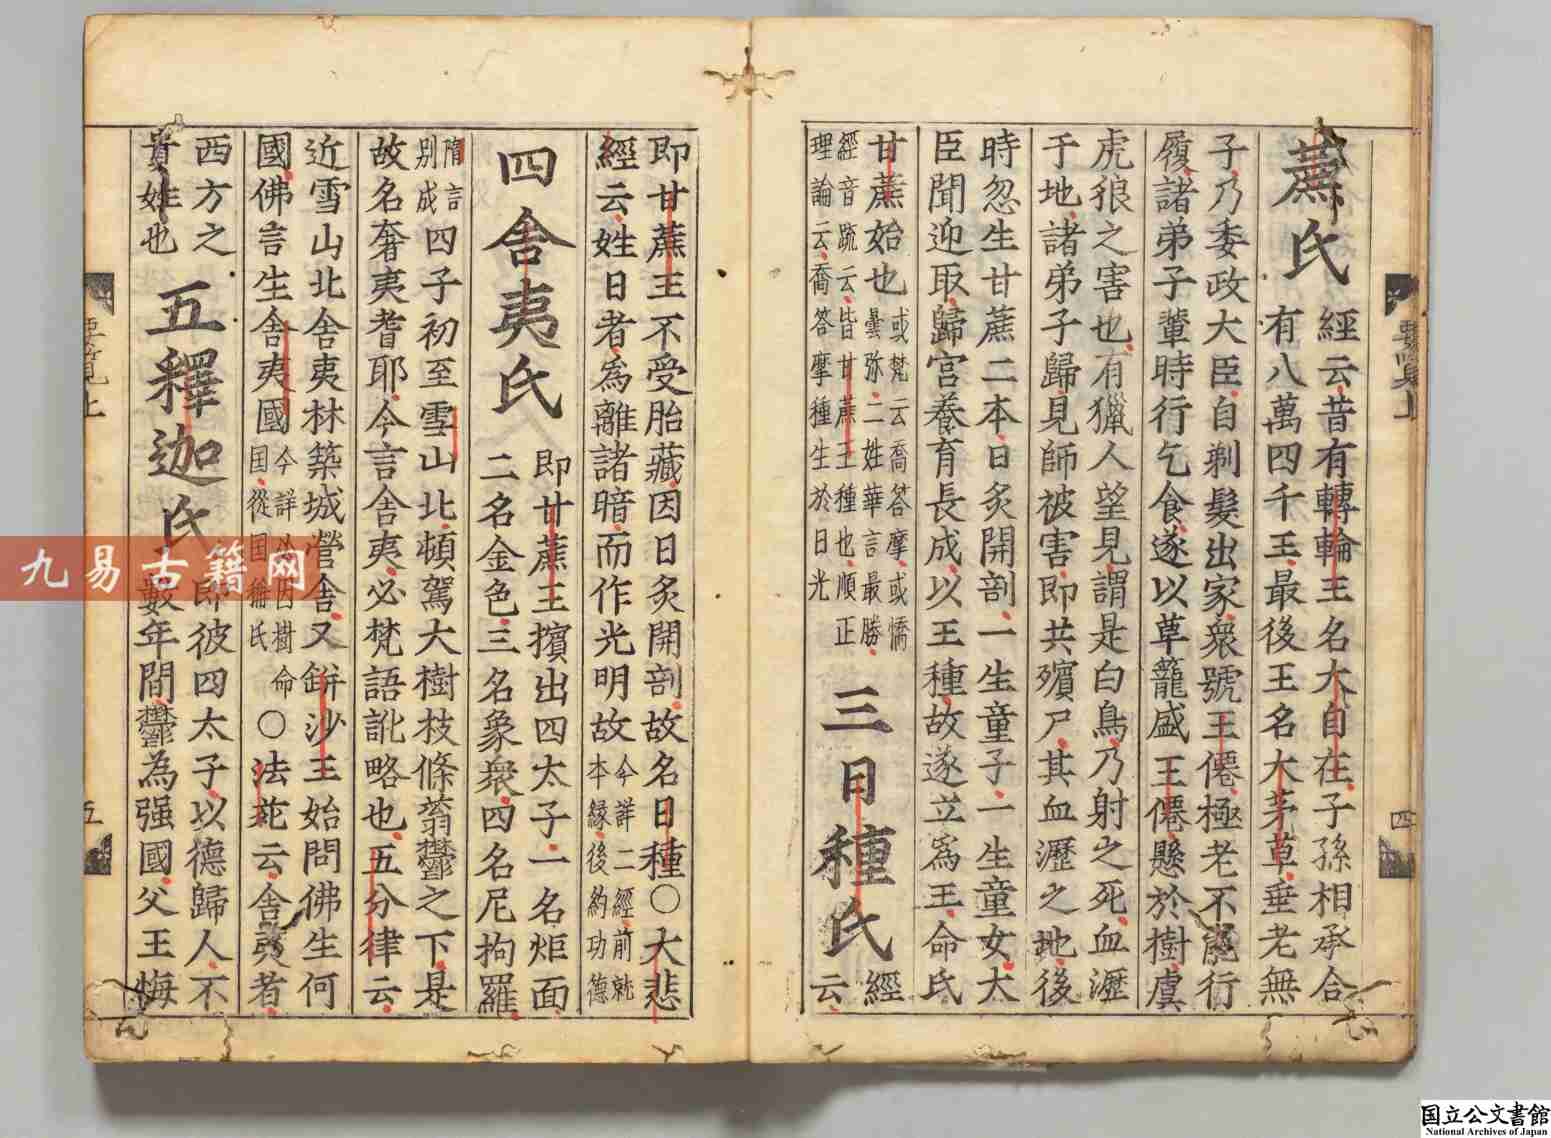 蔗氏 經云昔有轉輪王名大自在子孫相承合
有八萬四千王最後王名大茅草垂老無
子乃委政大臣自剃髮出家衆號王僊極老不能行
履諸弟子輩時行乞食遂以草籠盛王僊懸於樹虞
虎狼之害也有獵人望見謂是白鳥乃射之死血瀝
于地諸弟子歸見師被害即共殯尸其血瀝之地後
時忽生甘蔗二本日炙開剖一生童子一生童女大
臣聞迎取歸宮養育長成以王種故遂立爲王命氏
甘蔗始也 或梵云喬答摩或憍
曇弥二姓華言最勝
經音疏云皆甘蔗王種也順正
理論云喬答摩種生於日光
三日種氏 經
云
即甘蔗王不受胎藏因日炙開剖故名日種○大悲
經云姓日者為離諸暗而作光明故 今詳二經前就
本縁後約功德
四舍夷氏 即甘蔗王擯出四太子一名炬面
二名金色三名象衆四名尼拘羅
隋言
別成 四子初至雪山北頓駕大樹枝條蓊鬱之下是
故名奢夷耆耶今言舍夷必梵語訛略也五分律云
近雪山北舍夷林築城營舍又缾沙王始問佛生何
國佛言生舍夷國 今詳必因樹命
国從国稱氏 ○法苑云舍夷者
西方之
貴姓也
五釋迦氏 即彼四太子以德歸人不
數年間鬱為强國父王悔
要覽上
四
要覽上
五
九易古籍网
国立公文書館
National Archives of Japan